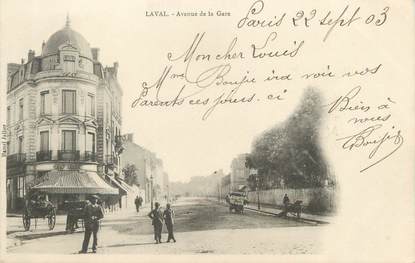 LAVAL. - Avenue de la Gare
Paris 22 Sept 03
Mon cher Louis
Mon Boujie ira voir vos
Parents ces jours. ci
Bien à
vous
Boujie